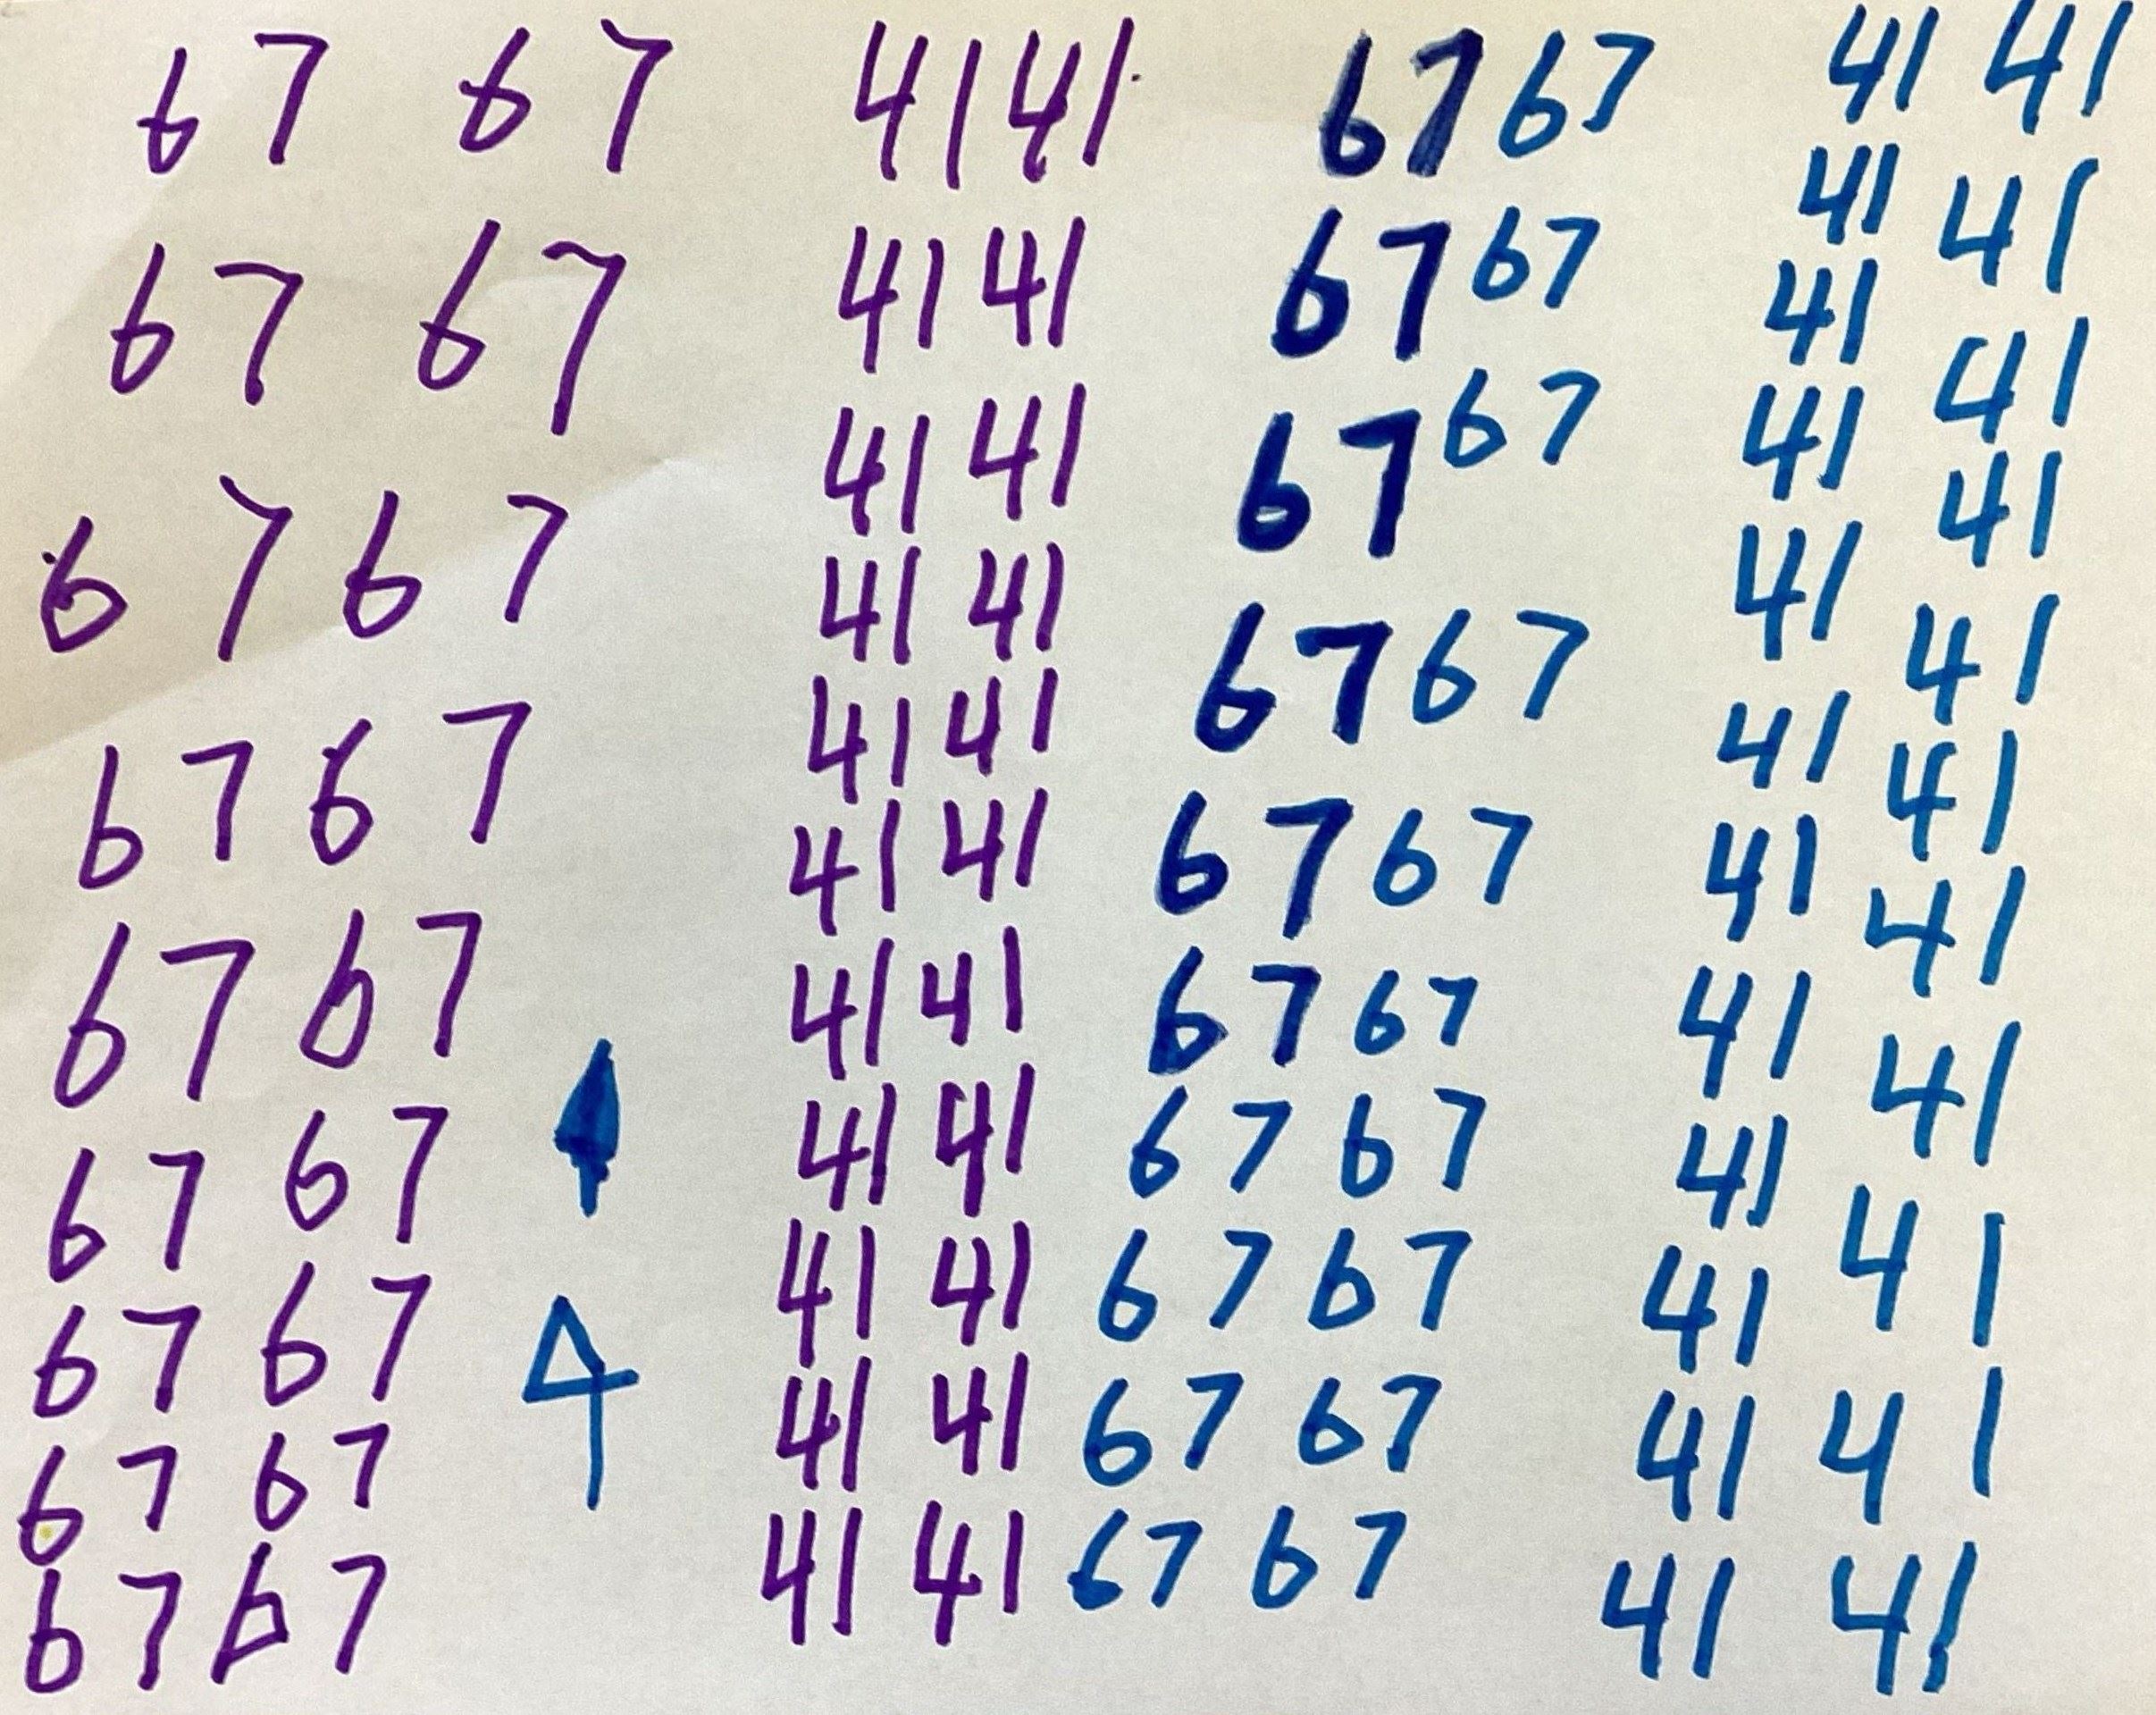 67 67
67 67
67 67
67 67
67 67
67 67
67 67
67 67
67 67
41 41
41 41
41 41
41 41
41 41
41 41
41 41
41 41
41 41
41 41
41 41
67 67
67 67
67 67
67 67
67 67
67 67
67 67
67 67
67 67
67 67
41 41
41 41
41
41 41
41 41
41 41
41 41
41 41
41 41
41 41
41 41
41 41